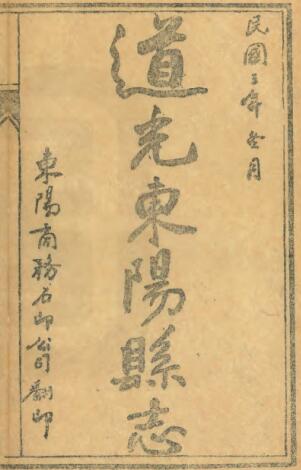 民國三年冬月
道光東陽縣志
東陽商務石印公司翻印